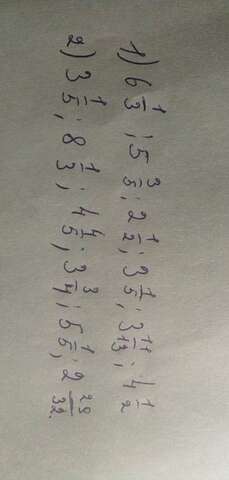 1) 6 1/3; 5 3/5; 2 1/2; 3 1/5; 3 11/13; 4 1/2
2) 3 1/5; 8 1/3; 4 4/5; 3 3/4; 5 1/5; 2 29/32